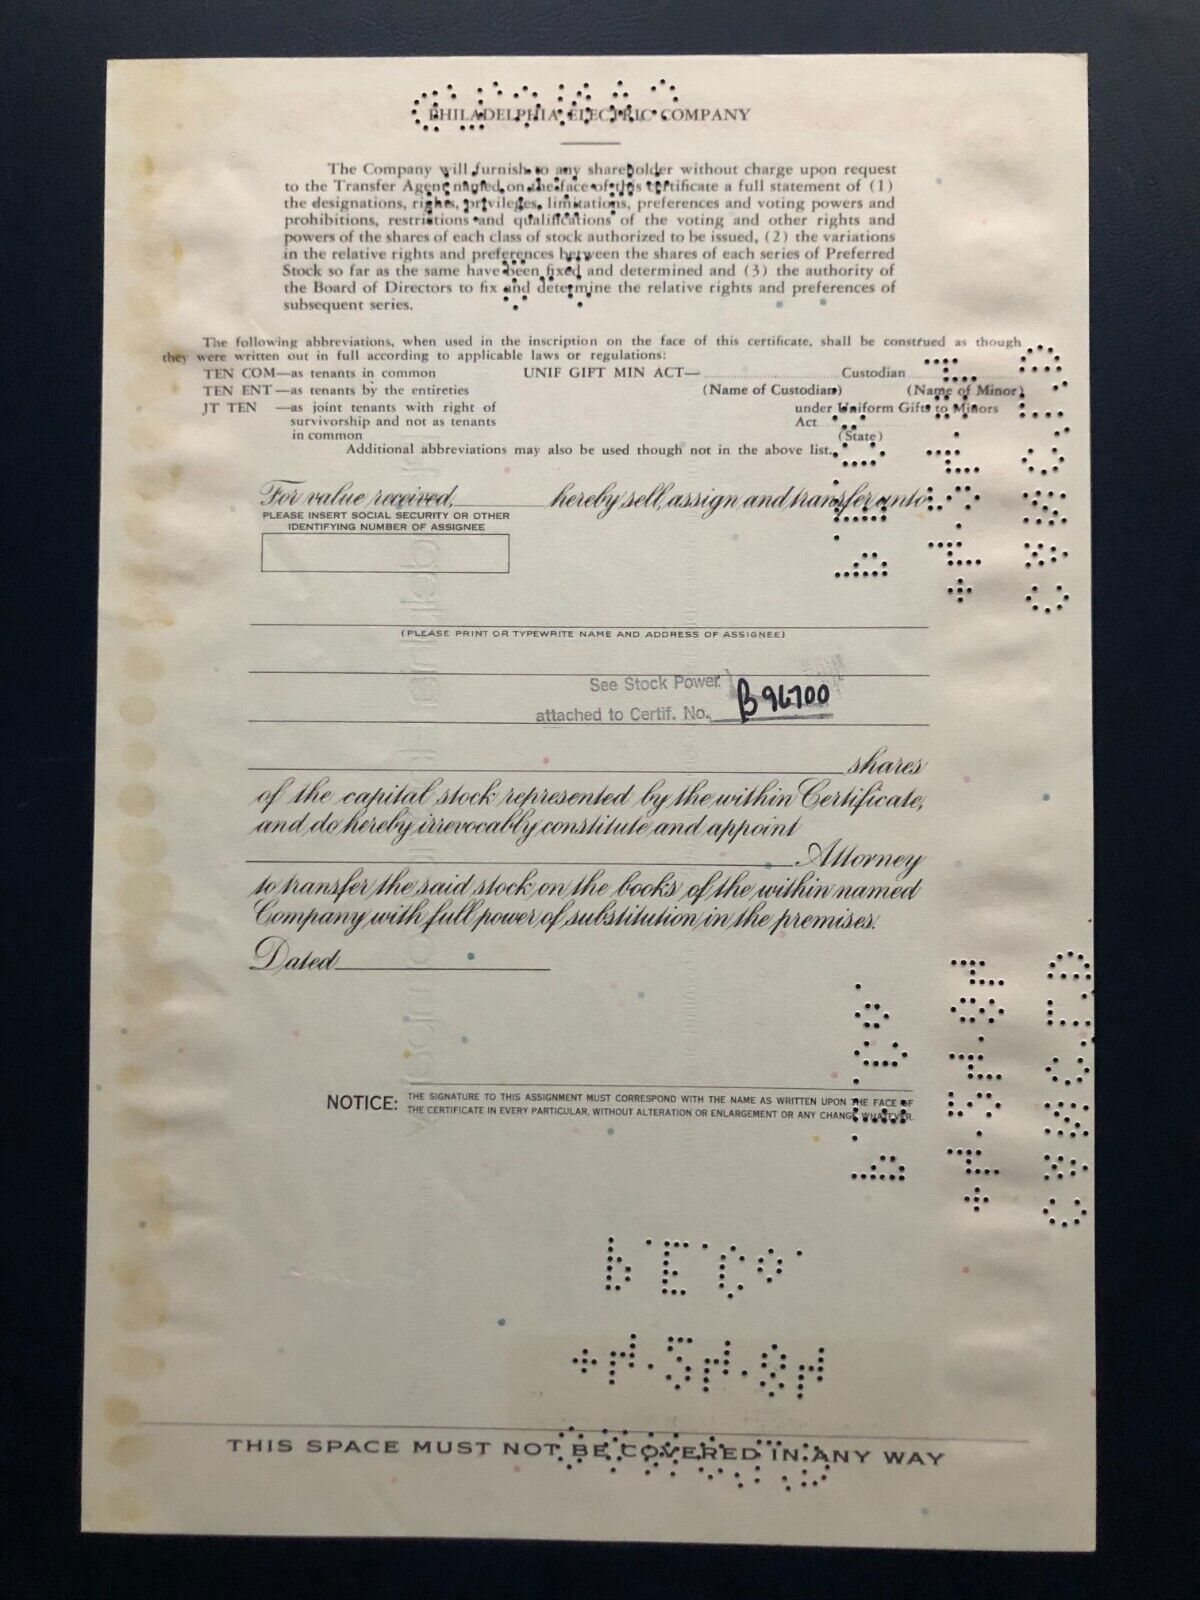 PHILADELPHIA ELECTRIC COMPANY
The Company will furnish to any shareholder without charge upon request
to the Transfer Agent named on the face of this certificate a full statement of (1)
the designations, rights, privileges, limitations, preferences and voting powers and
prohibitions, restrictions and qualifications of the voting and other rights and
powers of the shares of each class of stock authorized to be issued, (2) the variations
in the relative rights and preferences between the shares of each series of Preferred
Stock so far as the same have been fixed and determined and (3) the authority of
the Board of Directors to fix and determine the relative rights and preferences of
subsequent series.
The following abbreviations, when used in the inscription on the face of this certificate, shall be construed as though
they were written out in full according to applicable laws or regulations:
TEN COM—as tenants in common UNIF GIFT MIN ACT— Custodian
TEN ENT—as tenants by the entireties (Name of Custodian) (Name of Minor)
JT TEN —as joint tenants with right of under Uniform Gifts to Minors
survivorship and not as tenants Act
in common (State)
Additional abbreviations may also be used though not in the above list.
For value received, hereby sell, assign and transfer unto
PLEASE INSERT SOCIAL SECURITY OR OTHER
IDENTIFYING NUMBER OF ASSIGNEE
(PLEASE PRINT OR TYPEWRITE NAME AND ADDRESS OF ASSIGNEE)
See Stock Power
attached to Certif. No. B96700
shares
of the capital stock represented by the within Certificate,
and do hereby irrevocably constitute and appoint
Attorney
to transfer the said stock on the books of the within named
Company with full power of substitution in the premises.
Dated
NOTICE: THE SIGNATURE TO THIS ASSIGNMENT MUST CORRESPOND WITH THE NAME AS WRITTEN UPON THE FACE OF
THE CERTIFICATE IN EVERY PARTICULAR, WITHOUT ALTERATION OR ENLARGEMENT OR ANY CHANGE WHATEVER.
THIS SPACE MUST NOT BE COVERED IN ANY WAY